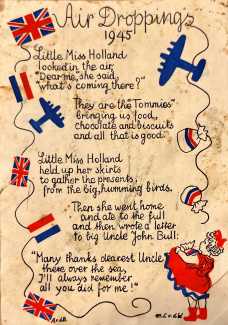 Air Droppings
1945
Little Miss Holland
looked in the air,
"Dear me, she said,
what's coming there?"
They are the Tommies"
bringing us food,
chocolate and biscuits
and all that is good.
Little Miss Holland
held up her skirts
to gather the presents,
from the big, humming birds.
Then she went home
and ate to the full
and then wrote a letter
to big Uncle John Bull:
"Many thanks dearest Uncle
there over the sea,
I'll always remember
all you did for me!"